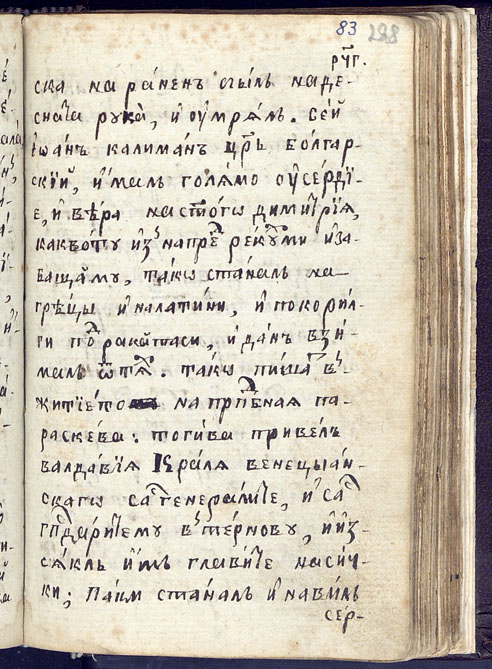 83 298
рч҃г.
ска на ра́ненъ быль на де-
сна́та рука̀, и҆ ѹ҆мря́ль. Се́й
І҆ѡа́нъ калима́нъ цр҃ь бо́лгар-
скїй, и҆ма́ль голя́мо ѹ҆се́рдї-
е, и҆ вѣ́ра на ст҃о́гѡ дими́трїѧ,
какво́то и҆з̾ напре́д реко́хми и҆ за-
такѡ ста́наль на
грѣ́цы и҆ на лати́ни, и҆ покори́л-
ги под̾ рака́та си, и҆ да́нъ взи́-
маль ѿ тѧ́х. та́кѡ пи́шат в̾
житїе́то на прпⷣбная па-
раске́ва: тоги́ва приве́лъ
валда́вїя Кра́ля венецыа́н-
скагѡ са генера́лите, и҆ са
гпⷣда́рите му в̾ те́рнову, и҆ и҆з̾-
сѧ́клъ и҆мъ гла́вите на си́ч-
ки; Па́ки ста́наль и҆ нави́ль
сер-